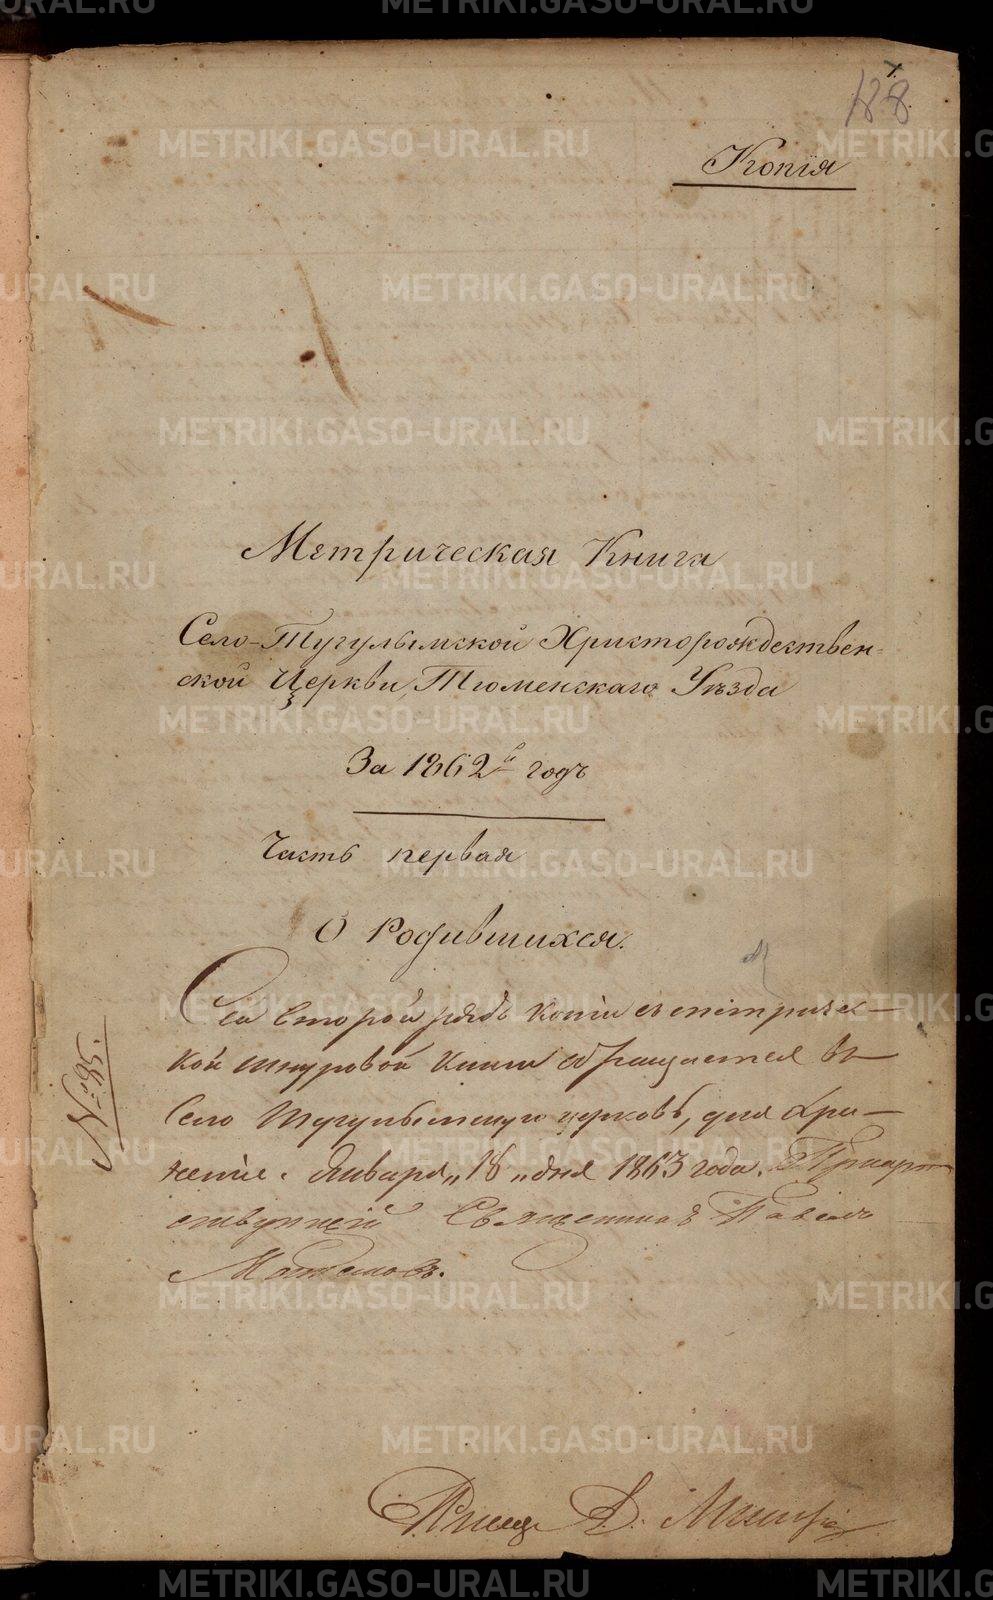 188
Копія
Метрическая Книга
Село-Тугулымской Христорождествен-
ской Церкви, Тюменскаго Уѣзда
За 1862й годъ
Часть первая
О Родившихся.
Сей второй рядъ копіи съ метричес-
кой шнуровой книги обращается въ
Село Тугулымскую церковь, для хра-
неніе. Января „18„ дня 1863 года.
Священникъ Павелъ
№ 85.
METRIKI.GASO-URAL.RU